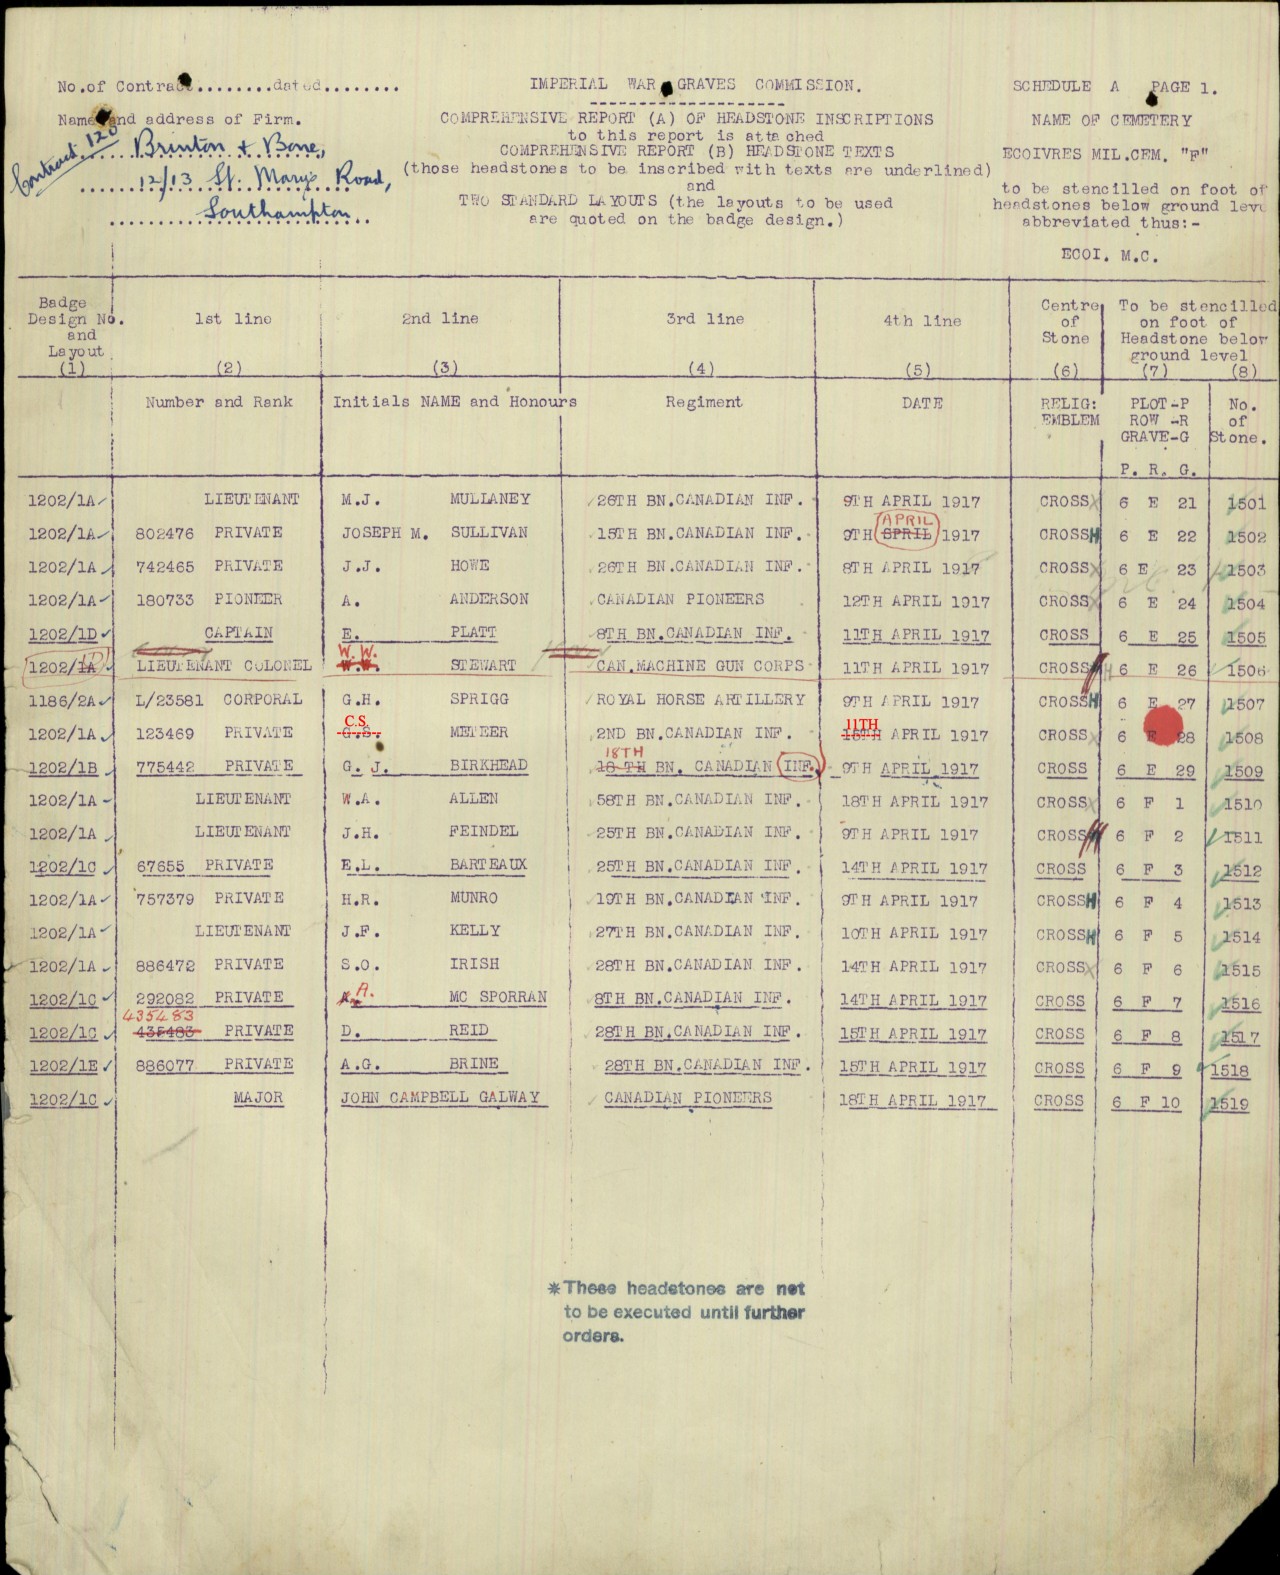 No.of Contract.........dated........
IMPERIAL WAR GRAVES COMMISSION.
SCHEDULE A PAGE 1.
Name and address of Firm.
Contract 120
Brinton & Bone,
12/13 St. Mary's Road,
Southampton
COMPREHENSIVE REPORT (A) OF HEADSTONE INSCRIPTIONS
to this report is attached
COMPREHENSIVE REPORT (B) HEADSTONE TEXTS
(those headstones to be inscribed with texts are underlined)
and
TWO STANDARD LAYOUTS (the layouts to be used
are quoted on the badge design.)
NAME OF CEMETERY
ECOIVRES MIL.CEM. "F"
to be stencilled on foot of
headstones below ground leve
abbreviated thus:-
ECOI. M.C.
Badge Design No. and Layout (1)
1st line (2)
2nd line (3)
3rd line (4)
4th line (5)
Centre of Stone (6)
To be stencilled on foot of Headstone below ground level (7) (8)
Number and Rank
Initials NAME and Honours
Regiment
DATE
RELIG: EMBLEM
PLOT-P ROW -R GRAVE-G
P. R. G.
No. of Stone.
1202/1A LIEUTENANT M.J. MULLANEY 26TH BN.CANADIAN INF. 9TH APRIL 1917 CROSS X 6 E 21 1501
APRIL
1202/1A 802476 PRIVATE JOSEPH M. SULLIVAN 15TH BN.CANADIAN INF. 9TH SPRIL 1917 CROSS H 6 E 22 1502
1202/1A 742465 PRIVATE J.J. HOWE 26TH BN.CANADIAN INF. 8TH APRIL 1917 CROSS X 6 E 23 1503
1202/1A 180733 PIONEER A. ANDERSON CANADIAN PIONEERS 12TH APRIL 1917 CROSS X 6 E 24 1504
1202/1D CAPTAIN E. PLATT 8TH BN.CANADIAN INF. 11TH APRIL 1917 CROSS 6 E 25 1505
W.W.
1202/1A LIEUTENANT COLONEL W.W. STEWART CAN.MACHINE GUN CORPS 11TH APRIL 1917 CROSS H 6 E 26 1506
1186/2A L/23581 CORPORAL G.H. SPRIGG ROYAL HORSE ARTILLERY 9TH APRIL 1917 CROSS H 6 E 27 1507
C.S. 11TH
1202/1A 123469 PRIVATE G.S. METEER 2ND BN.CANADIAN INF. APRIL 1917 CROSS X 6 E 28 1508
18TH
1202/1B 775442 PRIVATE G. J. BIRKHEAD 18 TH BN. CANADIAN INF. 9TH APRIL 1917 CROSS 6 E 29 1509
1202/1A LIEUTENANT W.A. ALLEN 58TH BN.CANADIAN INF. 18TH APRIL 1917 CROSS X 6 F 1 1510
1202/1A LIEUTENANT J.H. FEINDEL 25TH BN.CANADIAN INF. 9TH APRIL 1917 CROSS 6 F 2 1511
1202/1C 67655 PRIVATE E.L. BARTEAUX 25TH BN.CANADIAN INF. 14TH APRIL 1917 CROSS 6 F 3 1512
1202/1A 757379 PRIVATE H.R. MUNRO 19TH BN.CANADIAN INF. 9TH APRIL 1917 CROSS H 6 F 4 1513
1202/1A LIEUTENANT J.F. KELLY 27TH BN.CANADIAN INF. 10TH APRIL 1917 CROSS H 6 F 5 1514
1202/1A 886472 PRIVATE S.O. IRISH 28TH BN.CANADIAN INF. 14TH APRIL 1917 CROSS X 6 F 6 1515
1202/1C 292082 PRIVATE A. MC SPORRAN 8TH BN.CANADIAN INF. 14TH APRIL 1917 CROSS 6 F 7 1516
435483
1202/1C 435483 PRIVATE D. REID 28TH BN.CANADIAN INF. 15TH APRIL 1917 CROSS 6 F 8 1517
1202/1E 886077 PRIVATE A.G. BRINE 28TH BN.CANADIAN INF. 15TH APRIL 1917 CROSS 6 F 9 1518
1202/1C MAJOR JOHN CAMPBELL GALWAY CANADIAN PIONEERS 18TH APRIL 1917 CROSS 6 F 10 1519
*These headstones are not
to be executed until further
orders.